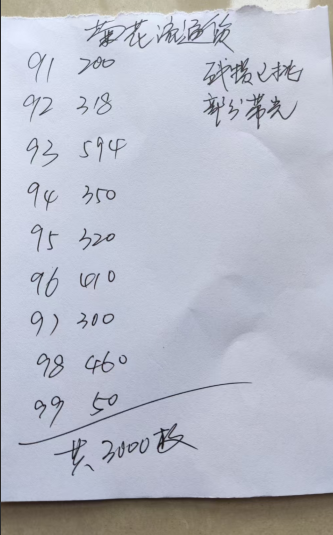 菊花流通货
91 200
残损已挑
92 318
部分带光
93 594
94 350
95 320
96 410
97 300
98 460
99 50
共3000枚